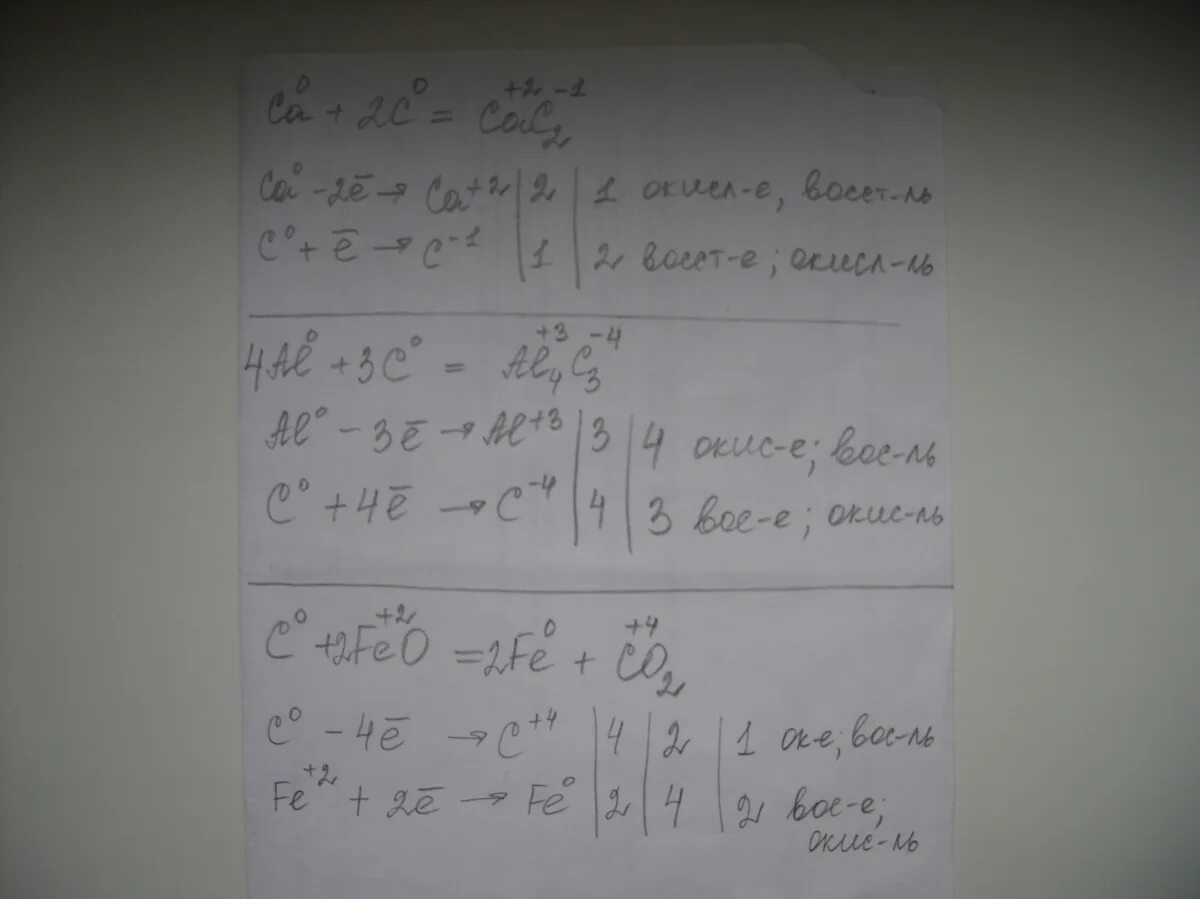 Ca⁰ + 2C⁰ = Ca⁺²C₂⁻¹
Ca⁰ - 2ē → Ca⁺² | 2 | 1 окисл-е, восст-ль
C⁰ + ē → C⁻¹ | 1 | 2 восст-е; окисл-ль
4Al⁰ + 3C⁰ = Al₄⁺³C₃⁻⁴
Al⁰ - 3ē → Al⁺³ | 3 | 4 окис-е; вос-ль
C⁰ + 4ē → C⁻⁴ | 4 | 3 вос-е; окис-ль
C⁰ + 2Fe⁺²O = 2Fe⁰ + C⁺⁴O₂
C⁰ - 4ē → C⁺⁴ | 4 | 2 | 1 ок-е; вос-ль
Fe⁺² + 2ē → Fe⁰ | 2 | 4 | 2 вос-е;
окис-ль